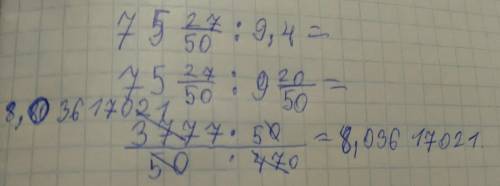 75 27/50 : 9,4 =
75 27/50 : 9 20/50 =
8,03617021
3777 · 50 / 50 : 470 = 8,03617021.